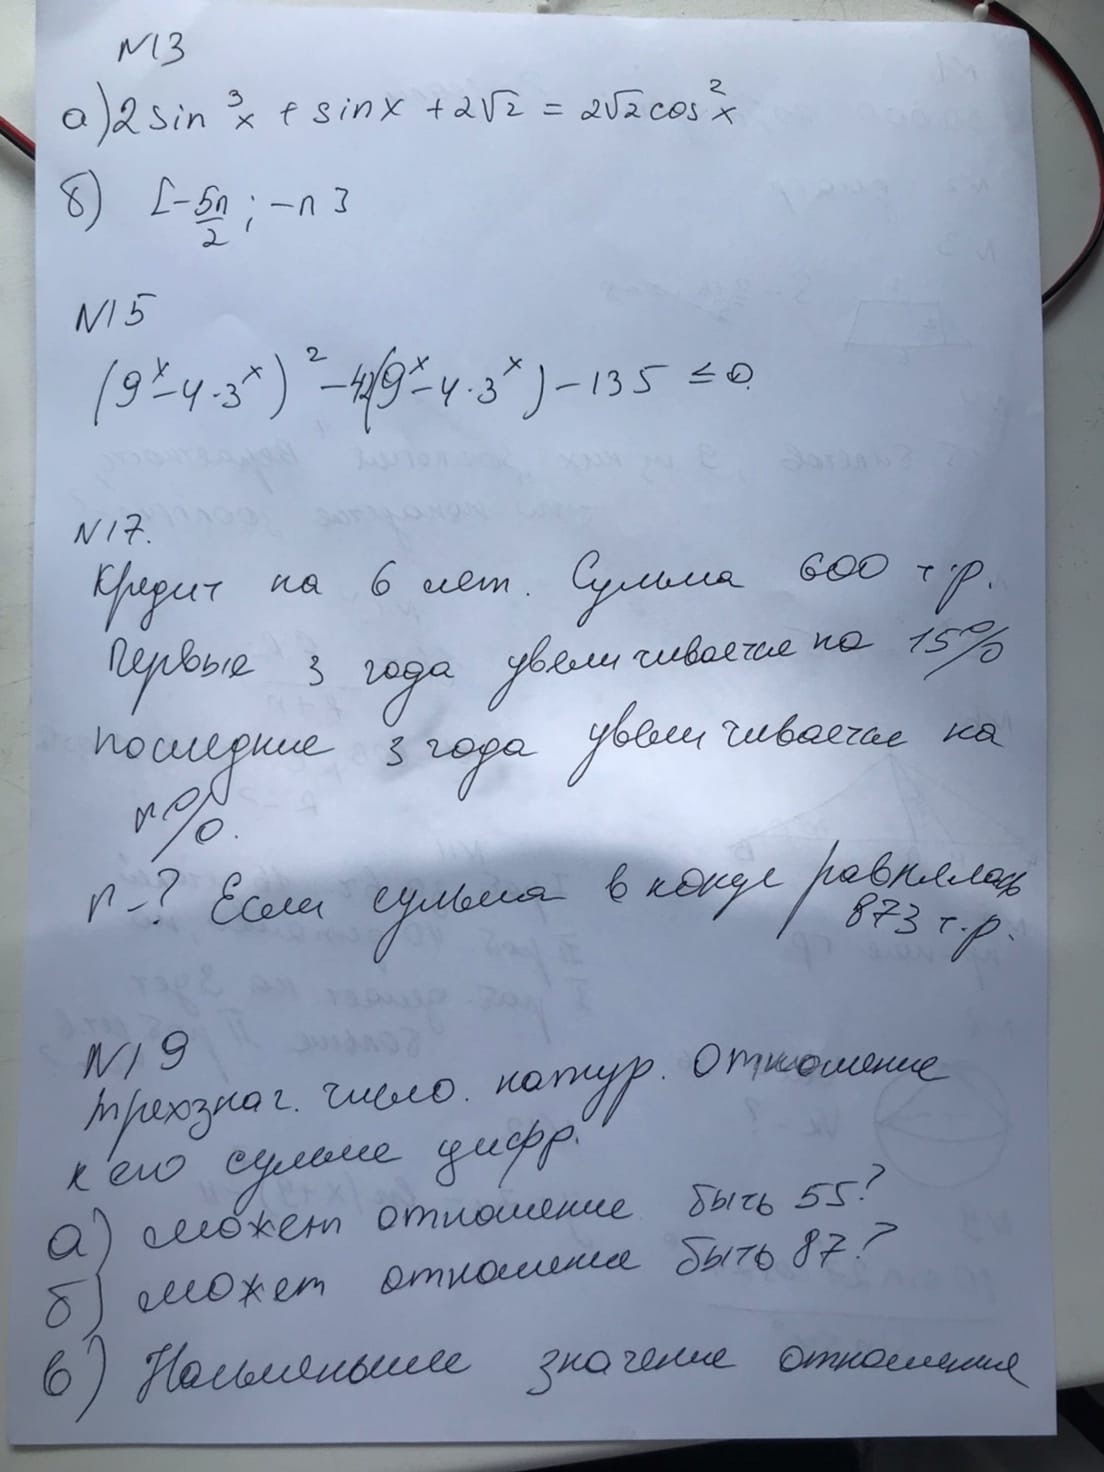 N13
а) 2 sin³x + sinx + 2√2 = 2√2 cos²x
б) [-5п/2; -п]
N15
(9ˣ - 4·3ˣ)² - 42(9ˣ - 4·3ˣ) - 135 ≤ 0
N17.
Кредит на 6 лет. Сумма 600 т.р.
Первые 3 года увеличивается на 15%
последние 3 года увеличивается на
r%.
r-? Если сумма в конце равнялась
873 т.р.
N19
трехзнач. число. натур. Отношение
к его сумме цифр.
а) может отношение быть 55?
б) может отношение быть 87?
в) Наименьшее значение отношения